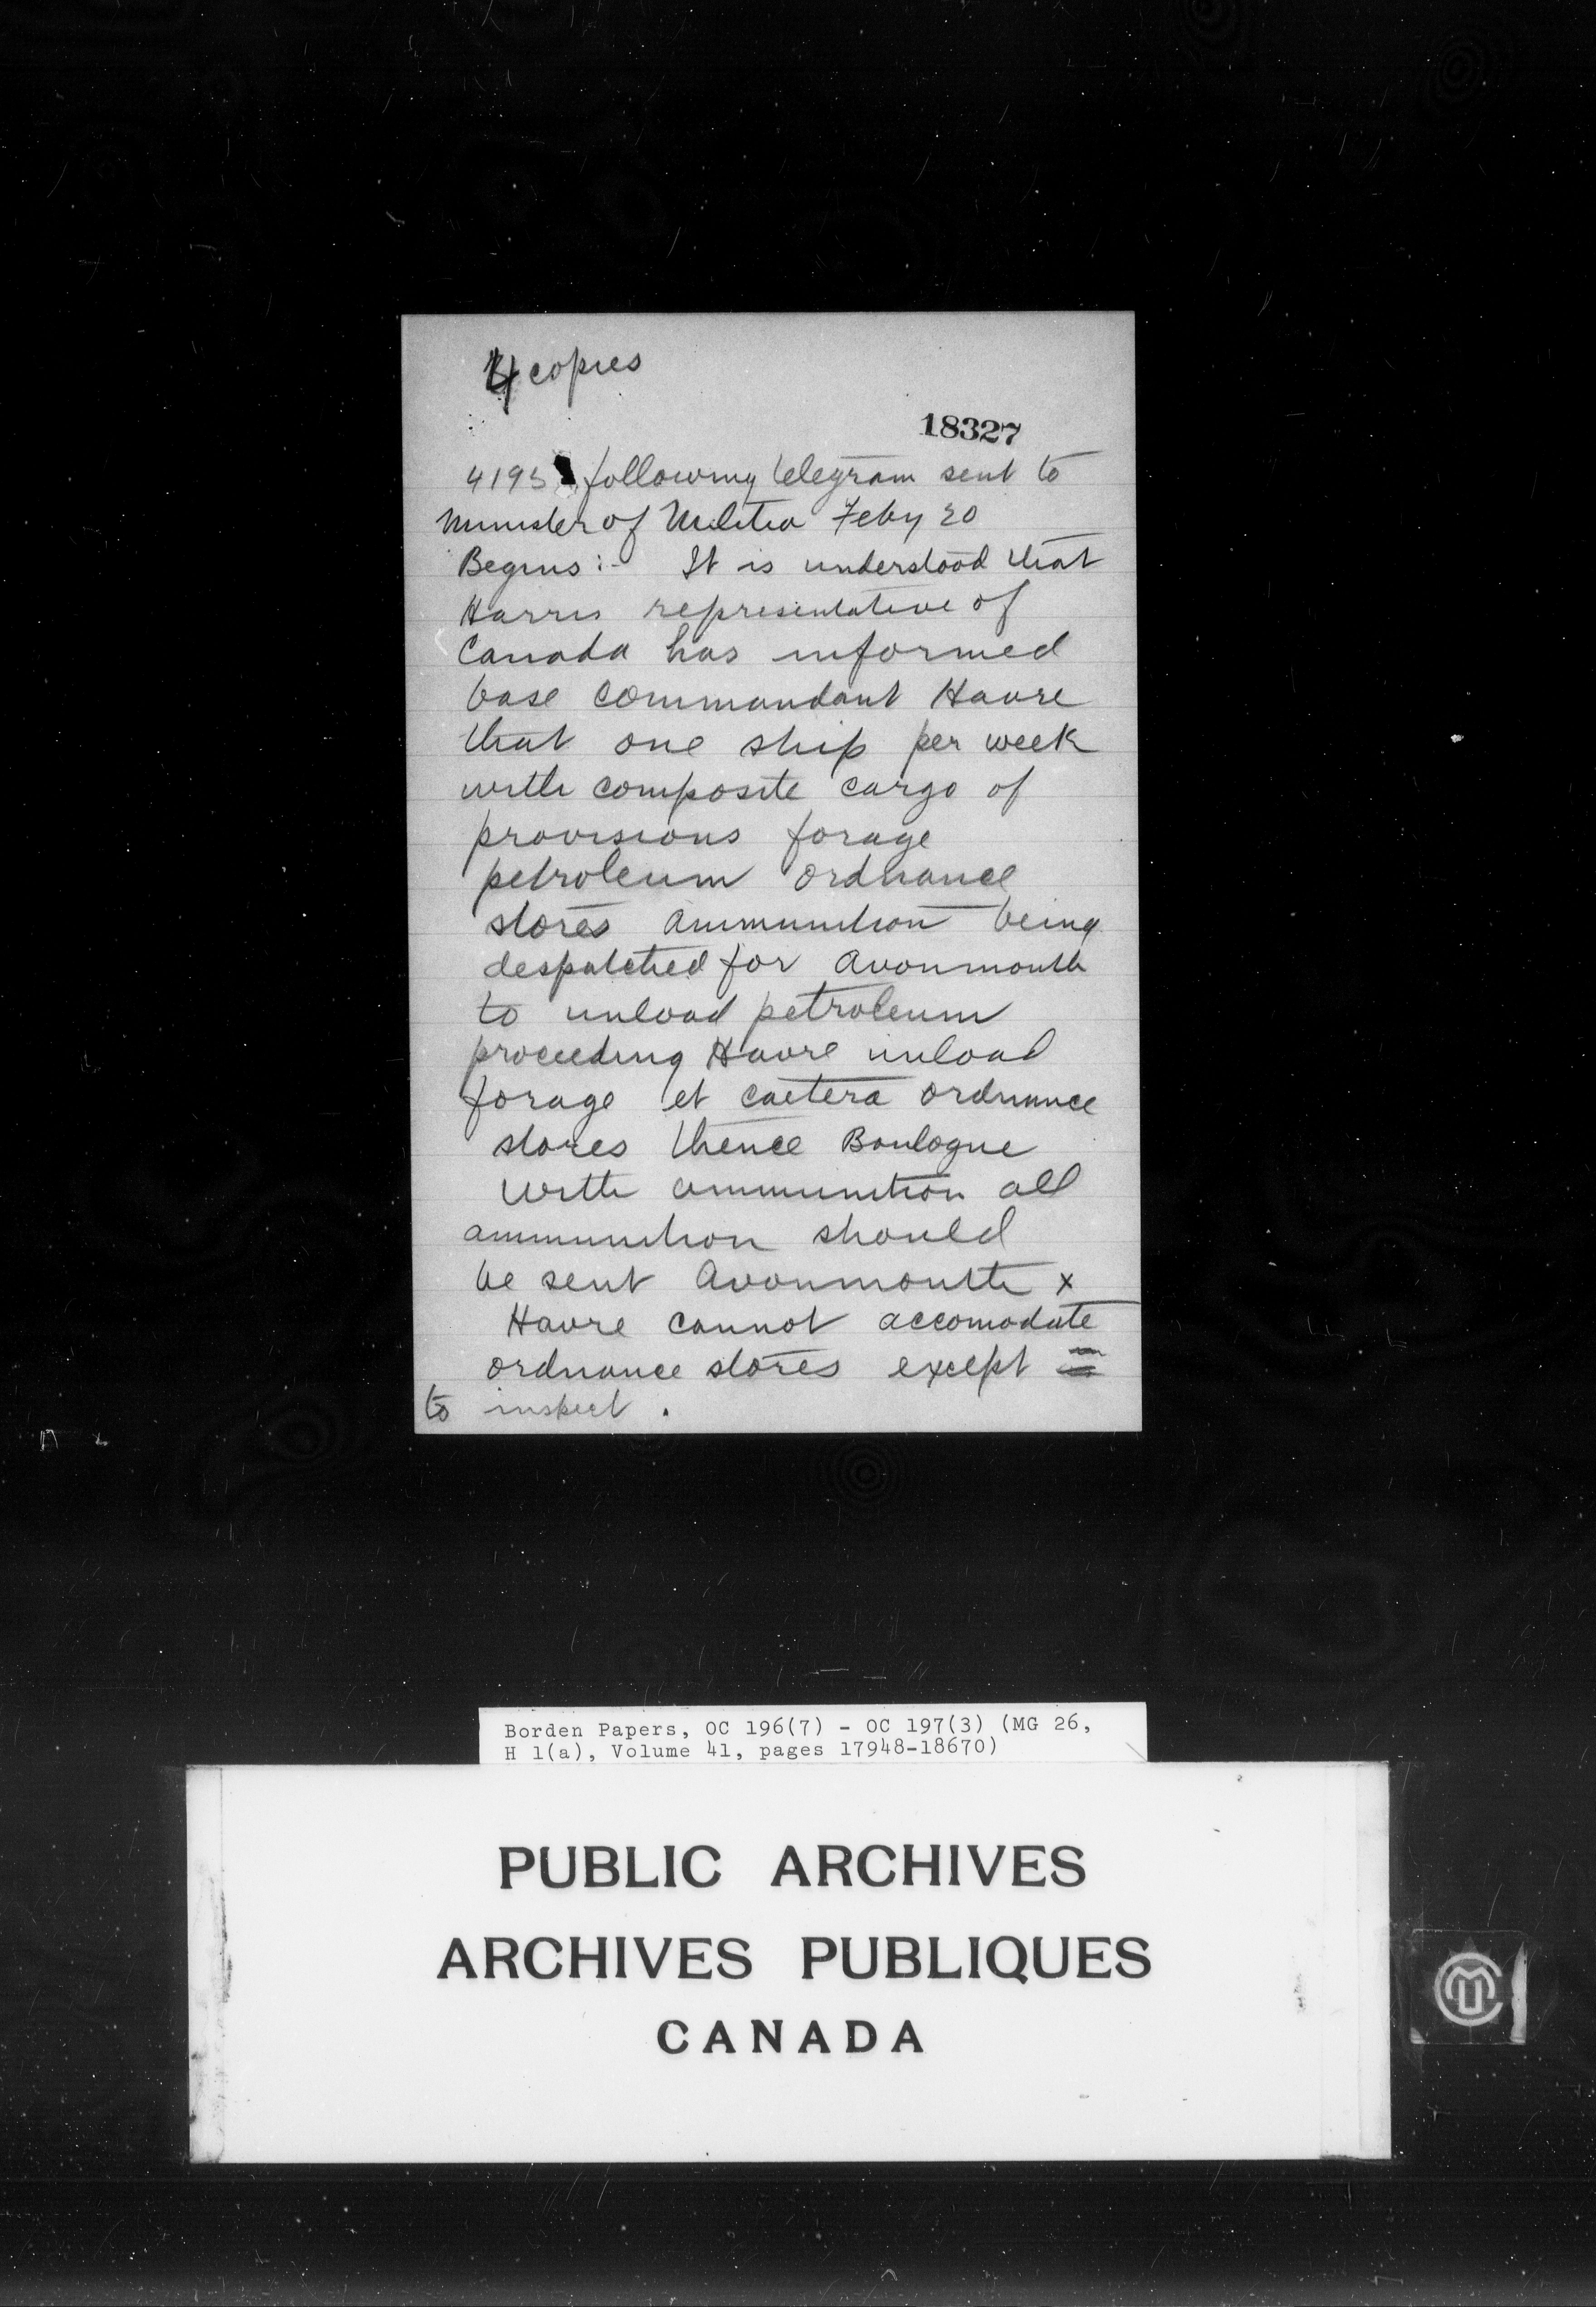 4 copies
18327
4195 following telegram sent to
Minister of Militia Feby 20
Begins :- It is understood that
Harris representative of
Canada has informed
base commandant Havre
that one ship per week
with composite cargo of
provisions forage
petroleum ordnance
stores ammunition being
despatched for Avonmouth
to unload petroleum
proceeding Havre unload
forage et caetera ordnance
stores thence Boulogne
with ammunition all
ammunition should
be sent Avonmouth x
Havre cannot accomodate
ordnance stores except
to inspect .
Borden Papers, OC 196(7) - OC 197(3) (MG 26,
H 1(a), Volume 41, pages 17948-18670)
PUBLIC ARCHIVES
ARCHIVES PUBLIQUES
CANADA